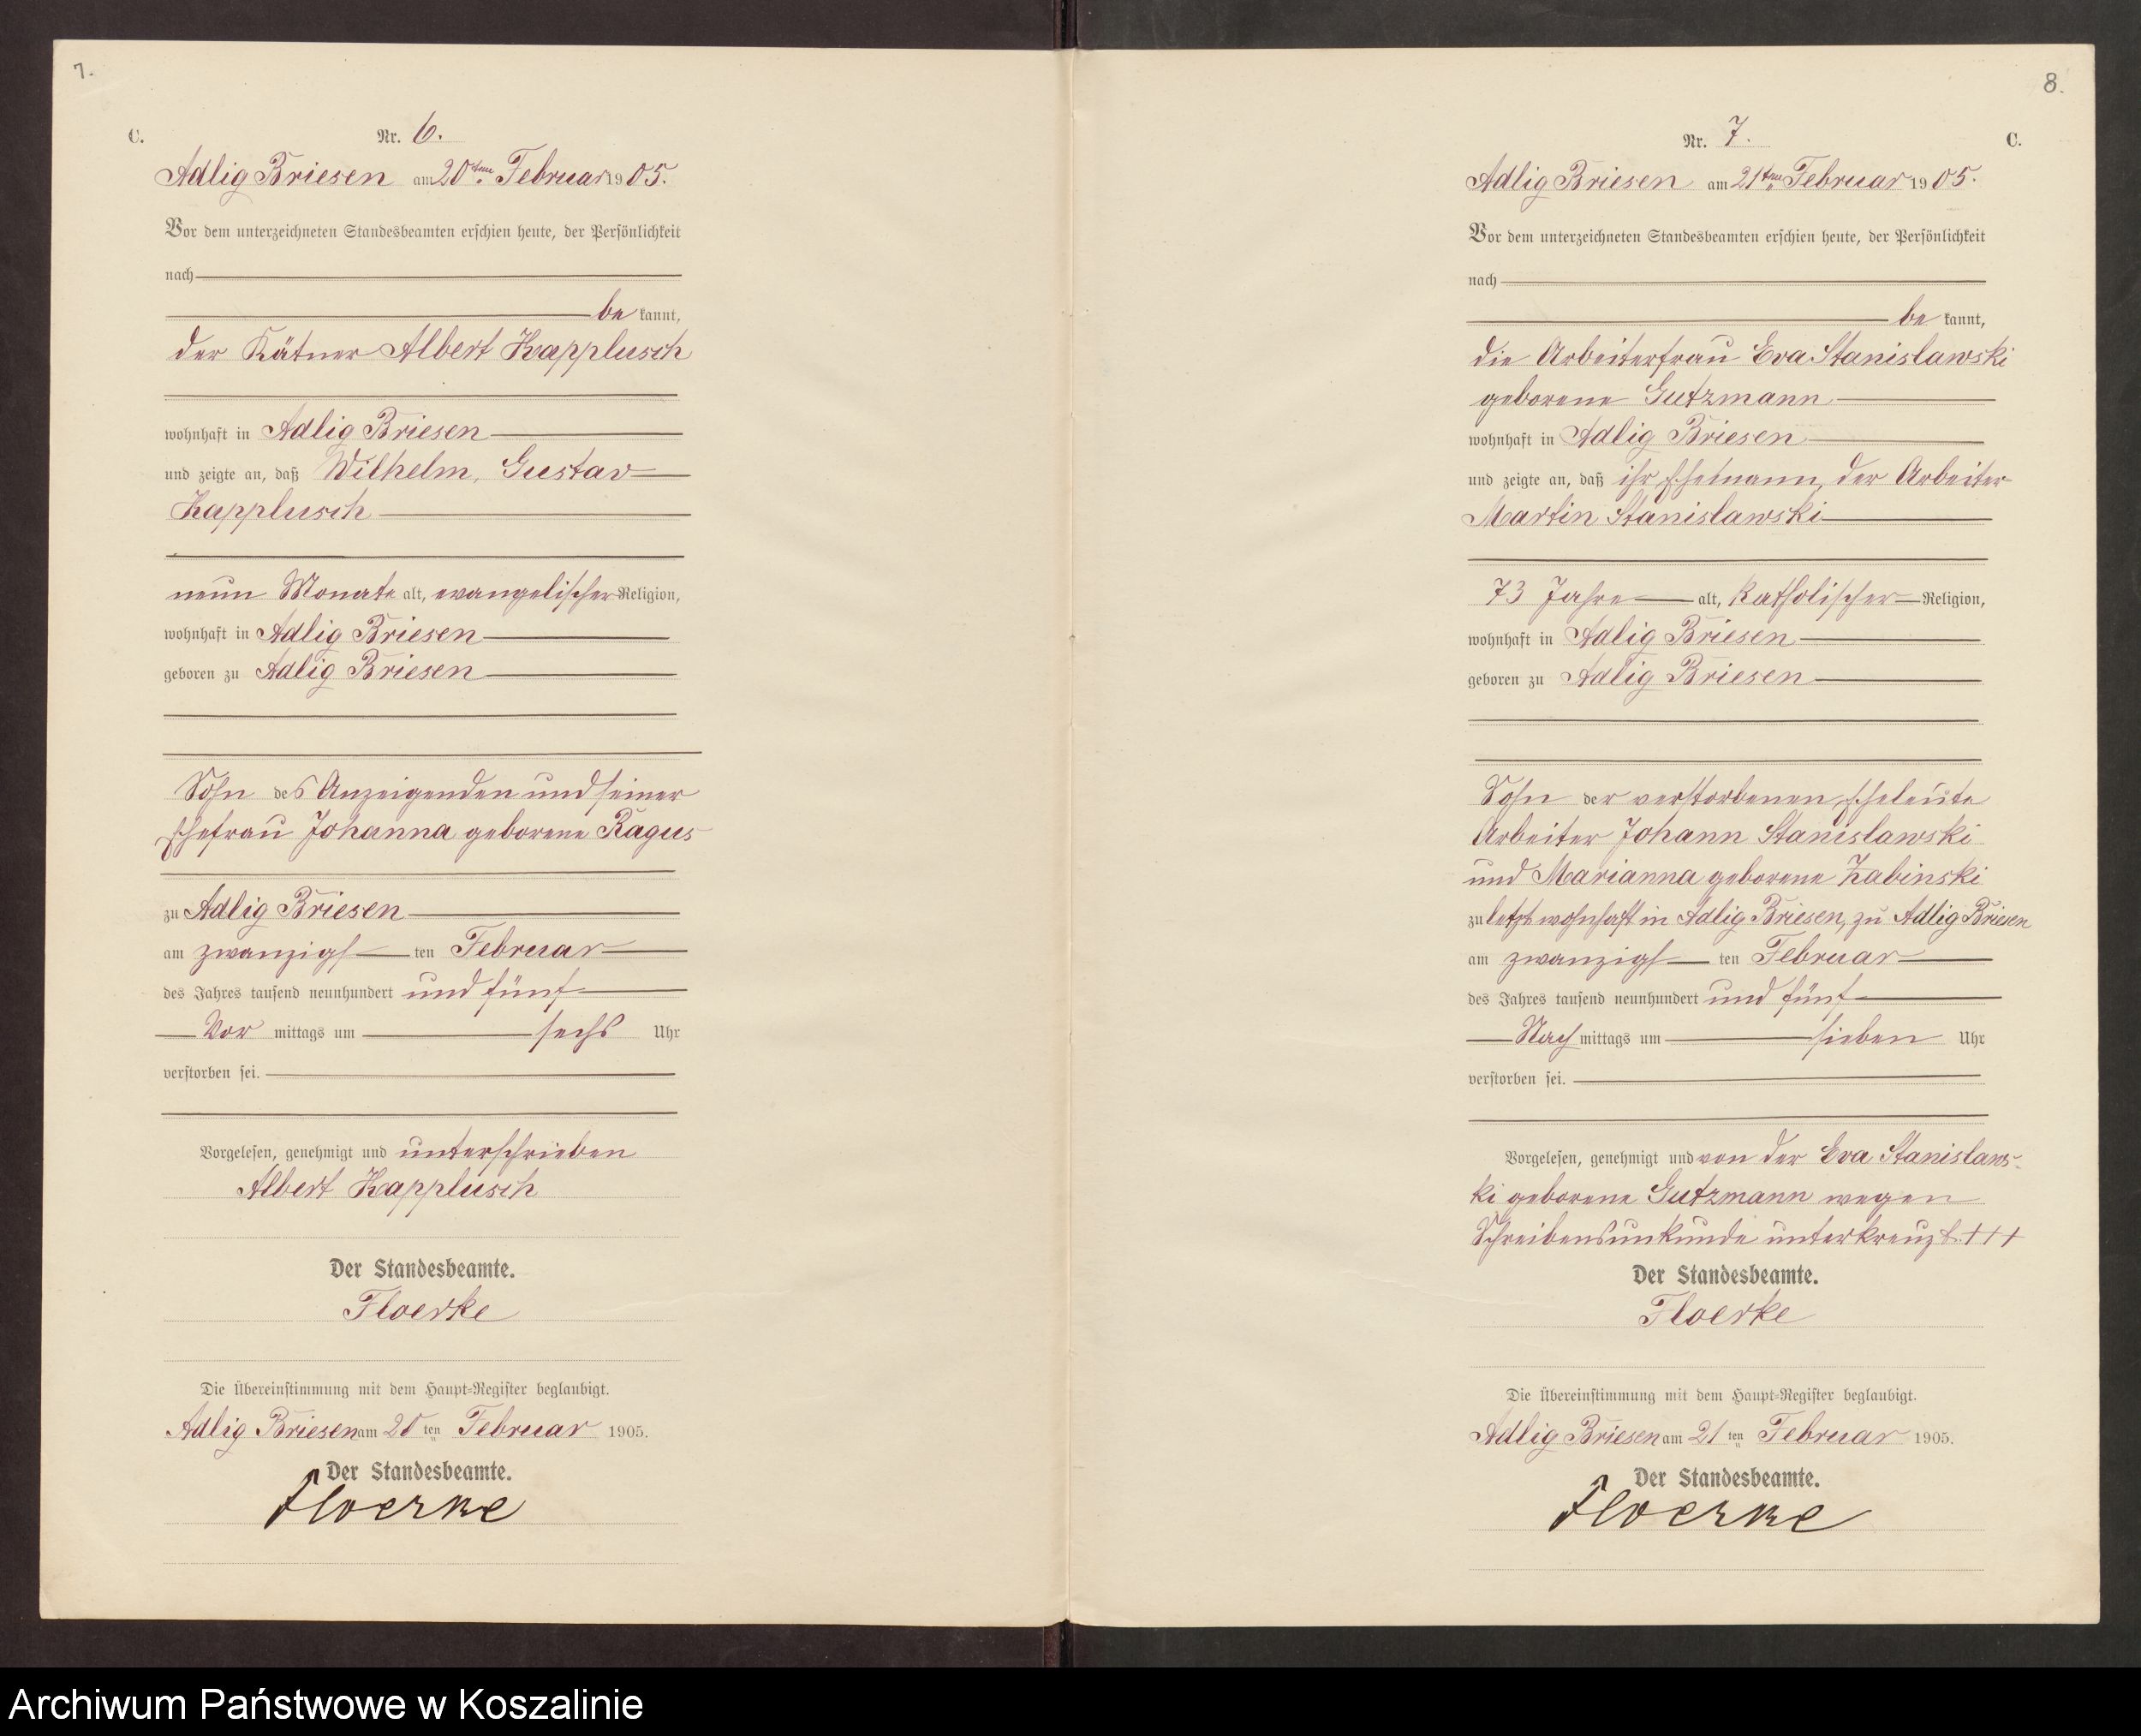 7.
C.
Nr. 6.
Adlig Briesen am 20ten Februar 1905.
Vor dem unterzeichneten Standesbeamten erschien heute, der Persönlichkeit
nach
be kannt,
der Kätner Albert Kapplusch
wohnhaft in Adlig Briesen
und zeigte an, daß Wilhelm, Gustav
Kapplusch
neun Monate alt, evangelischer Religion,
wohnhaft in Adlig Briesen
geboren zu Adlig Briesen
Sohn des Anzeigenden und seiner
Ehefrau Johanna geborene Ragus
zu Adlig Briesen
am zwanzigsten Februar
des Jahres tausend neunhundert und fünf
Vor mittags um sechs Uhr
verstorben sei.
Vorgelesen, genehmigt und unterschrieben
Albert Kapplusch
Der Standesbeamte.
Floerke
Die Übereinstimmung mit dem Haupt-Register beglaubigt.
Adlig Briesen am 20 ten Februar 1905.
Der Standesbeamte.
Floerke
8.
Nr. 7.
C.
Adlig Briesen am 21ten Februar 1905.
Vor dem unterzeichneten Standesbeamten erschien heute, der Persönlichkeit
nach
be kannt,
die Arbeiterfrau Eva Stanislawski
geborene Gutzmann
wohnhaft in Adlig Briesen
und zeigte an, daß ihr Ehemann, der Arbeiter
Martin Stanislawski
73 Jahre alt, katholischer Religion,
wohnhaft in Adlig Briesen
geboren zu Adlig Briesen
Sohn der verstorbenen Eheleute
Arbeiter Johann Stanislawski
und Marianna geborene Zabinski
zuletzt wohnhaft in Adlig Briesen, zu Adlig Briesen
am zwanzigsten Februar
des Jahres tausend neunhundert und fünf
Nach mittags um sieben Uhr
verstorben sei.
Vorgelesen, genehmigt und von der Eva Stanislaws-
ki geborene Gutzmann wegen
Schreibensunkunde unterkreuzt. +++
Der Standesbeamte.
Floerke
Die Übereinstimmung mit dem Haupt-Register beglaubigt.
Adlig Briesen am 21 ten Februar 1905.
Der Standesbeamte.
Floerke
Archiwum Państwowe w Koszalinie